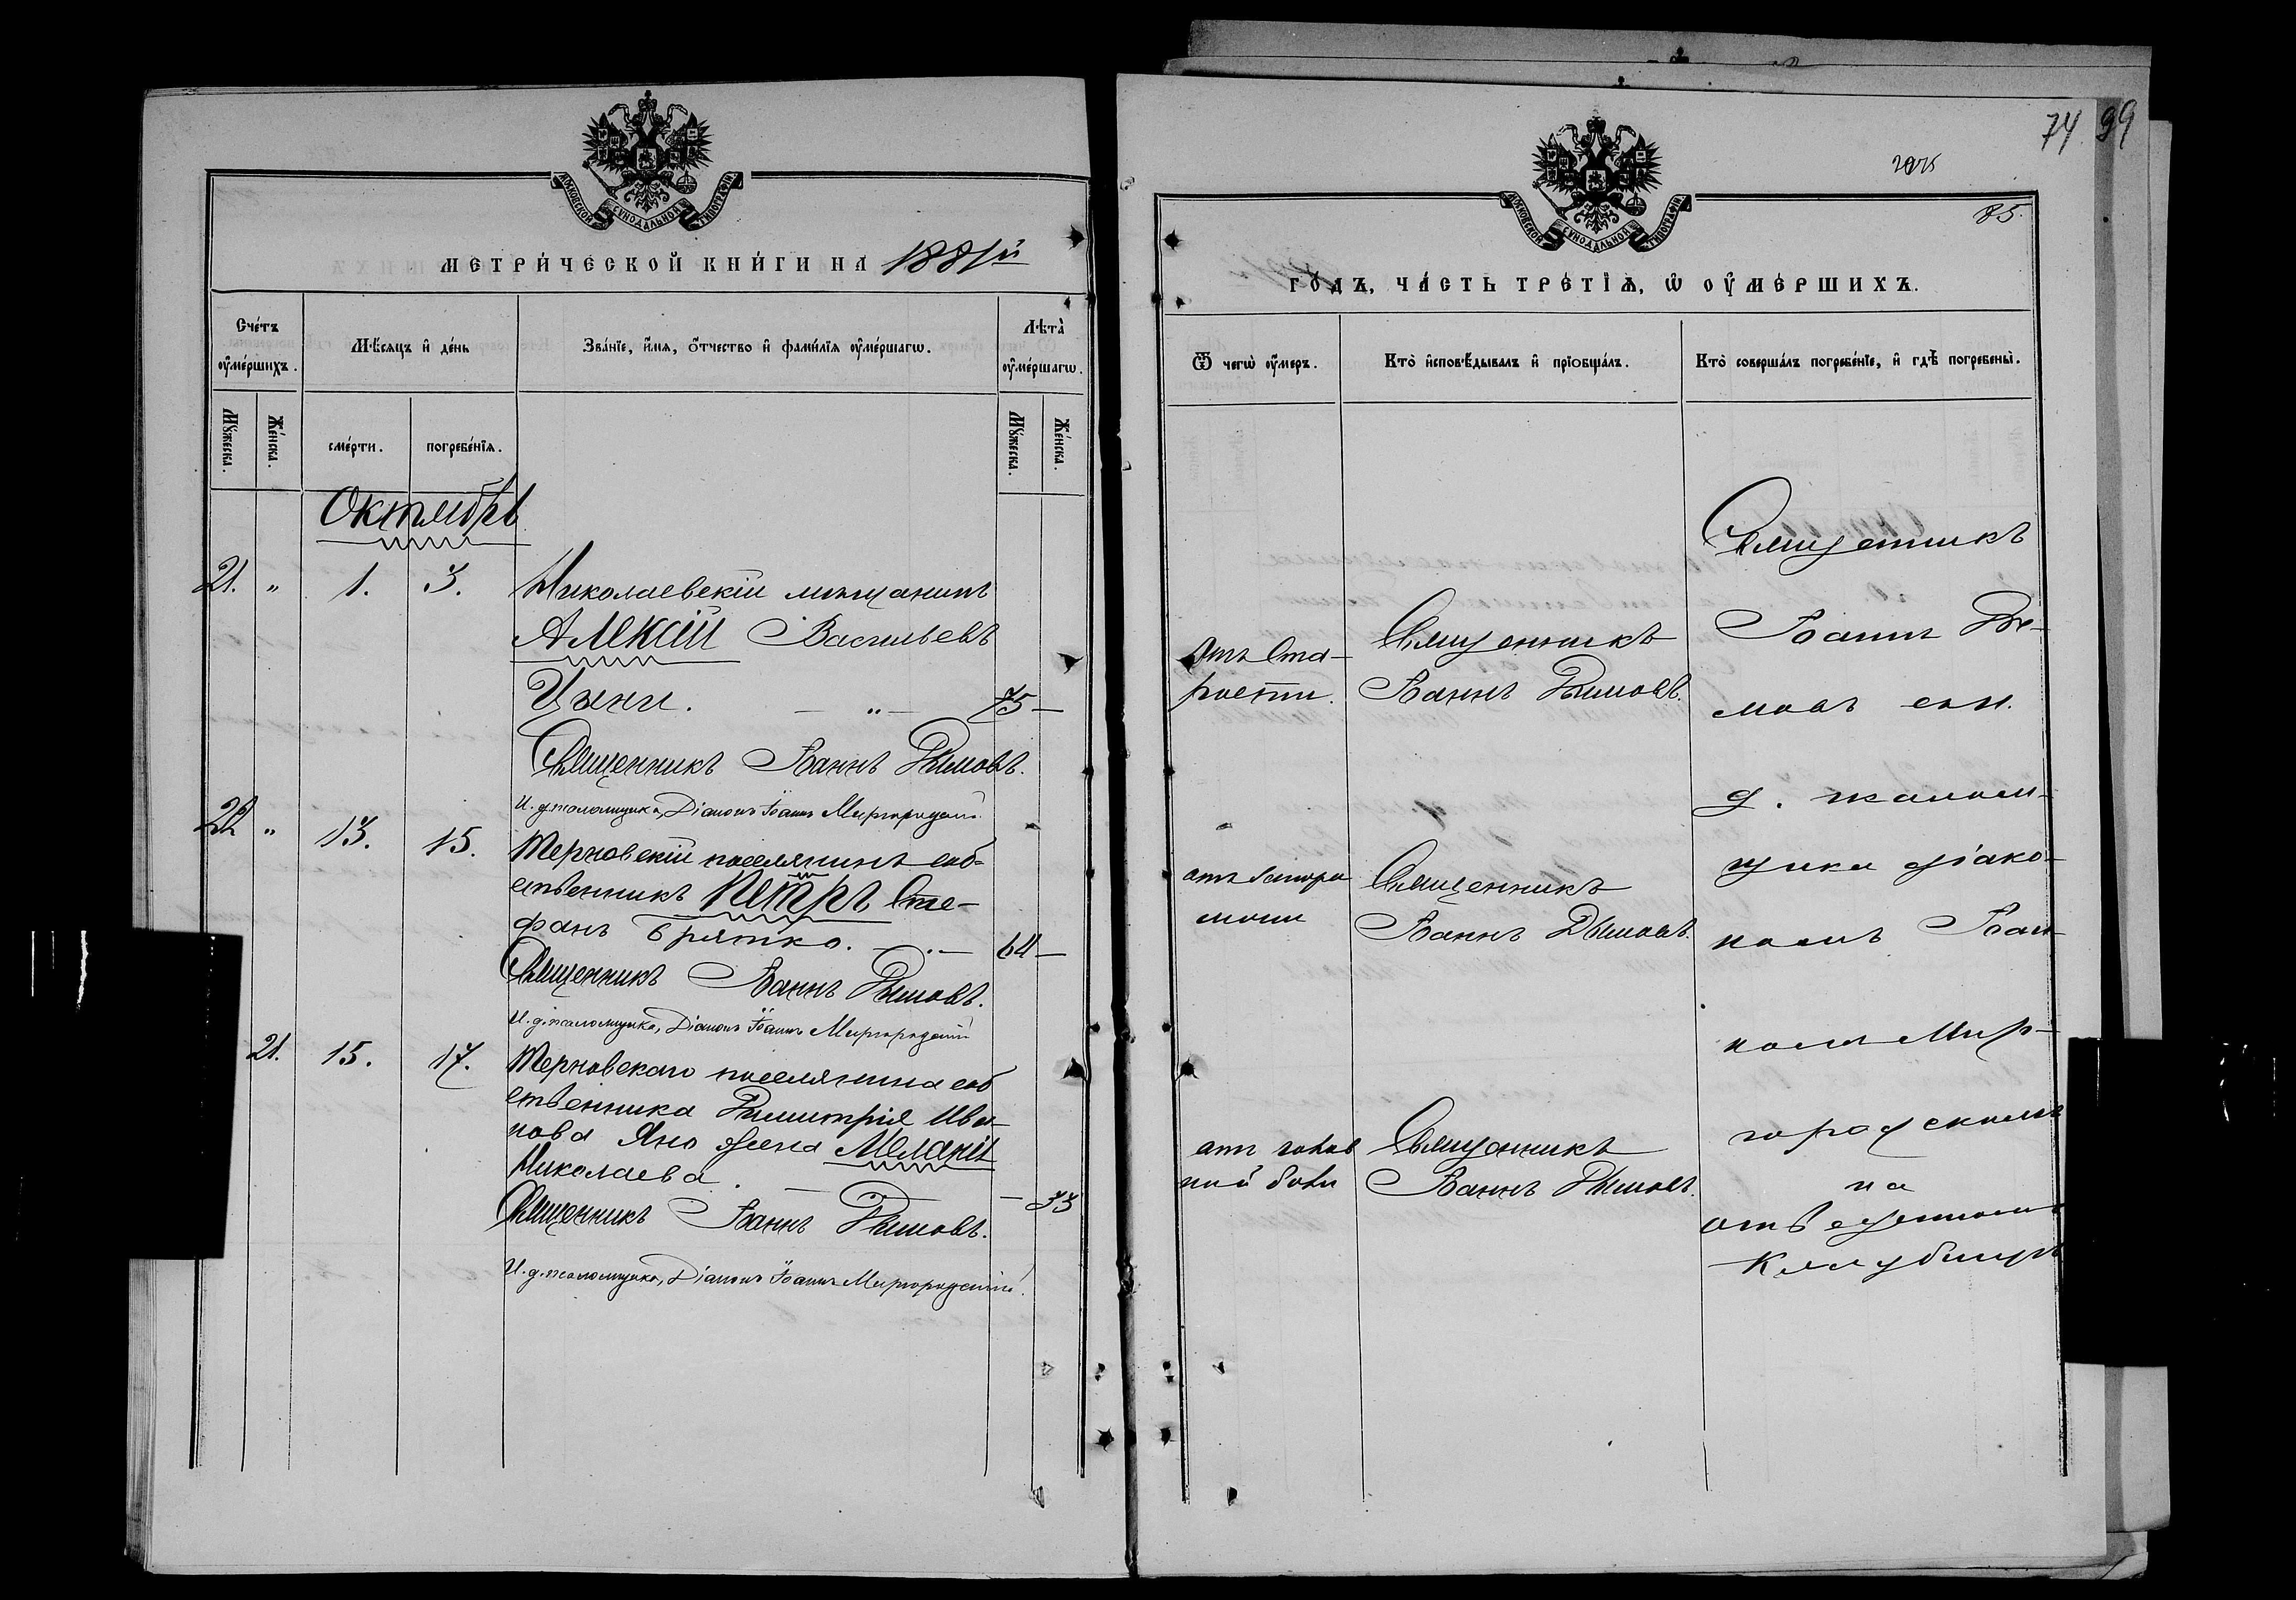 МОСКОВСКОЙ СѴНОДАЛЬНОЙ ТИПОГРАФІИ
МЕТРИ́ЧЕСКОЙ КНИ́ГИ НА 1881й
Сче́тъ оу҆ме́ршихъ.
Мѣ́сяцъ и҆ де́нь
Зва́нїе, и҆́мѧ, ѻ҆́тчество и҆ фами́лїѧ оу҆ме́ршагѡ.
Лѣта̀ оу҆ме́ршагѡ.
Мꙋ́жеска.
Же́нска.
сме́рти.
погребе́нїѧ.
Мꙋ́жеска.
Же́нска.
Октябрь
21. " 1. 3. Николаевскій мѣщанинъ
Алексій Васильевъ
— " — 75 —
Священникъ Іоаннъ Дымовъ.
И. д. псаломщика, Діаконъ Іоаннъ Миргородскій
22 " 13. 15. Терновскій поселянинъ соб-
ственникъ Петръ Сте-
фанъ Братко. — " — 64 —
Священникъ Іоаннъ Дымовъ.
И. д. псаломщика, Діаконъ Іоаннъ Миргородскій
21. 15. 17. Терновскаго поселянина соб
ственника Димитрія Ива-
нова Яно жена Меланія
Николаева. — " — 33
Священникъ Іоаннъ Дымовъ.
И. д. псаломщика, Діаконъ Іоаннъ Миргородскій.
74 99
85.
МОСКОВСКОЙ СѴНОДАЛЬНОЙ ТИПОГРАФІИ
ГО́ДЪ, ЧА́СТЬ ТРЕ́ТЇѦ, Ѡ҆ ОУ҆МЕ́РШИХЪ.
Ѿ чегѡ̀ оу҆́меръ.
Кто̀ и҆сповѣ́дывалъ и҆ прїѡбща́лъ.
Кто̀ соверша́лъ погребе́нїе, и҆ гдѣ̀ погребены̀.
отъ ста-
рости.
Священникъ
Іоаннъ Дымовъ.
отъ
Священникъ
Іоаннъ Дымовъ.
отъ голов
ной боли
Священникъ
Іоаннъ Дымовъ.
Священникъ
Іоаннъ Ды-
мовъ съ и.
д. псалом-
щика діако-
номъ Іоан-
номъ Мир-
городскимъ
на
отведенномъ
кладбищѣ